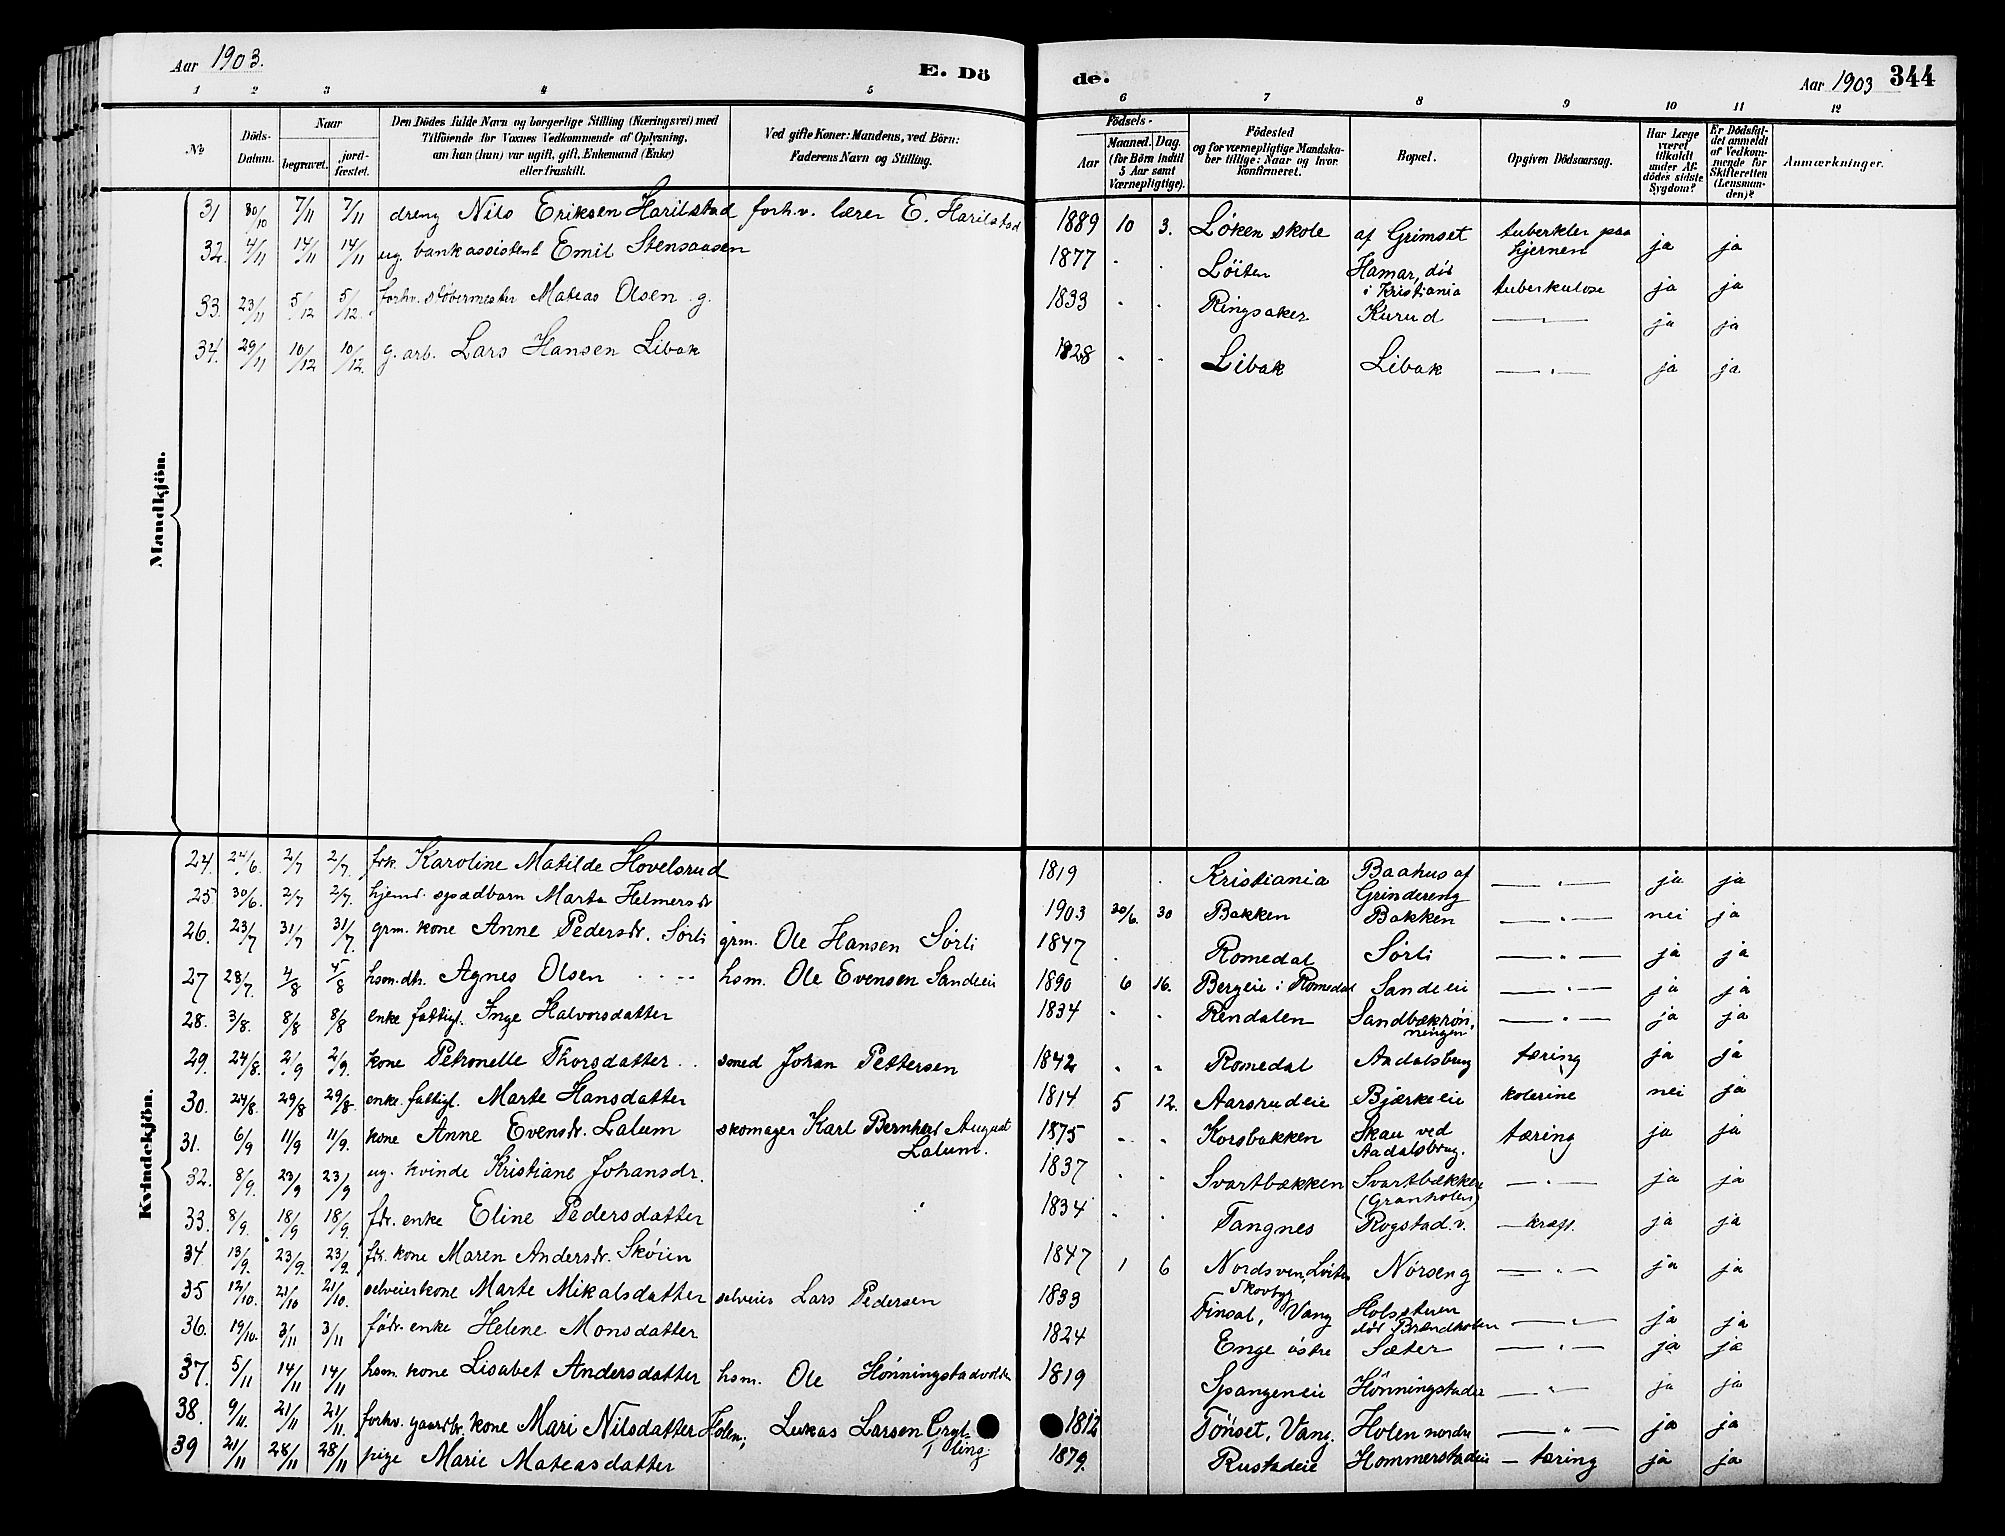 Aar 1903. E. Dö de. Aar 1903 344
1 2 3 4 5 6 7 8 9 10 11 12
No
Döds-Datum.
Naar
begravet.
jord-fæstet.
Den Dödes fulde Navn og borgerlige Stilling (Næringsvei) med
Tilföiende for Voxnes Vedkommende af Oplysning,
om han (hun) var ugift, gift, Enkemand (Enke)
eller fraskilt.
Ved gifte Koner: Mandens, ved Börn:
Faderens Navn og Stilling.
Födsels-
Aar
Maaned. Dag.
(for Börn indtil
5 Aar samt
Værnepligtige).
Födested
og for værnepligtige Mandska-
ber tillige: Naar og hvor
konfirmeret.
Bopæl.
Opgiven Dödsaarsag.
Har Læge
været
tilkaldt
under Af-
dödes sidste
Sygdom?
Er Dödsfal-
det anmeldt
af Vedkom-
mende for
Skifteretten
(Lensman-
den)?
Anmærkninger.
Mandkjön.
31 30/10 7/11 7/11 dreng Nils Eriksen Harilstad forhv. lærer E. Harilstad 1889 10 3. Løken skole af Grimset tuberkler paa hjernen ja ja
32. 4/11 14/11 14/11 ug. bankassistent Emil Stensaasen 1877 " " Löiten Hamar, död i Kristiania tuberkulose ja ja
33. 23/11 5/12 5/12. forhv. støbermester Mateas Olsen g. 1833 " " Ringsaker Kurud — " — ja ja
34. 29/11 10/12 10/12. g. arb. Lars Hansen Libak 1828 " " Libak Libak — " — ja ja
Kvindekjön.
24. 24/6. 2/7 2/7. frk. Karoline Matilde Hovelsrud 1819 " Kristiania Baahus af Grindereng — " — ja ja
25. 30/6. 2/7 2/7. hjemd. spædbarn Marta Helmersdr 1903 30/6. 30 Bakken Bakken — " — nei ja
26. 23/7 31/7 31/7. grm. kone Anne Pedersdr. Sørli grm. Ole Hansen Sørli 1847 " Romedal Sørli — " — ja ja
27 28/7. 4/8 4/8 hsm.dtr. Agnes Olsen hsm. Ole Evensen Sandeie 1890 6 16. Bergeie i Romedal Sandeie — " — ja ja
28. 3/8. 8/8 8/8 enke fattigl. Inge Halvorsdatter 1834 " " Rendalen Sandbækrønningen — " — ja ja
29. 24/8. 2/9 2/9. kone Petronelle Thorsdatter smed Johan Pettersen 1842 " " Romedal Aadalsbrug tæring ja ja
30. 24/8. 29/8 29/8. enke fattigl. Marte Hansdatter 1814 5 12. Aarsrudeie Bjærkeeie kolerine nei ja
31. 6/9 11/9 11/9. kone Anne Evensdr. Lalum skomager Karl Bernhard August Lalum. 1875 " " Korsbakken Skau ved Aadalsbrug. tæring ja ja
32. 8/9. 23/9 23/9 ug. kvinde Kristiane Johansdr. 1837 " " Svartbækken Svartbækken (Granholen) — " — ja ja
33. 8/9. 18/9 18/9. fdr. enke Eline Pedersdatter 1834 " " Tangnes Rogstad v. — kræft. ja ja
34 13/9. 23/9. 23/9. fdr. kone Maren Andersdr. Skøien 1847 1 6 Nordsven, Løiten Nörseng — " — ja ja
35 12/10. 21/10 21/10. selveierkone Marte Mikalsdatter selveier Lars Pedersen 1833 Skovbyg Finsal, Vang Holsstuen död Brændholen — " — ja ja
36. 19/10. 3/11 3/11 födr. enke Helene Monsdatter 1824 Enge östre Sæter — " — ja ja
37. 5/11 14/11 14/11 hsm. kone Lisabet Andersdatter hsm. Ole Hønningstadvolden 1819 Spangeneie Hönningstadeie — " — ja ja
38. 9/11. 21/11 21/11. forhv. gaardbr. kone Mari Nilsdatter Holen; Lukas Larsen Grytting. 1812 Tönset, Vang. Holen nordre — " — ja ja
39 21/11 28/11 28/11 pige Marie Mateasdatter 1879. Rustadeie Hommerstadeie — tæring ja ja